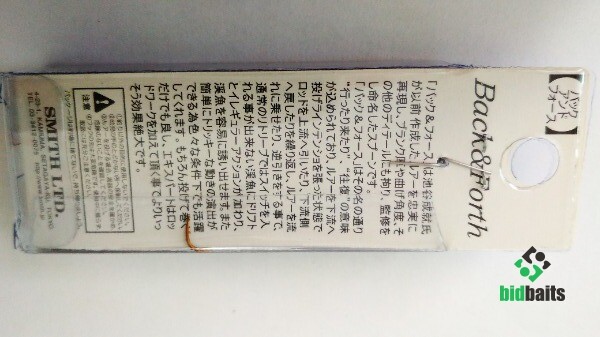 【バック
アンド
フォース】
Back&Forth
「バック&フォース」は池谷成就氏
が以前作成したルアーを忠実に
再現し、ブランク厚や曲げ角度、そ
の他のディテールにも拘り、監修を
し命名したスプーンです。
「バック&フォース」はその名の通り
“行ったり来たり” “往復”の意味
が込められており、ルアーを下流へ
投げラインテンションを張った状態で
ロッドを上流へ引いたり、下流側
へ戻したりを繰り返し、ルアーを流
れに乗せたり、逆引きをする事で、
通常のリトリーブではスイッチを入
れる事が出来ない渓魚にドリフト
とイレギュラーアクションが加わり、
渓魚を容易に誘い出せます。また
簡単にトリッキーな動きの演出が
できる為色々な条件下でも活躍
してくれます。もちろん投げて巻く
だけでも良し、エキスパートはロッ
ドワークを加えて頂く事でよりいっ
そう効果絶大です。
注意
SMITH LTD.
bidbaits